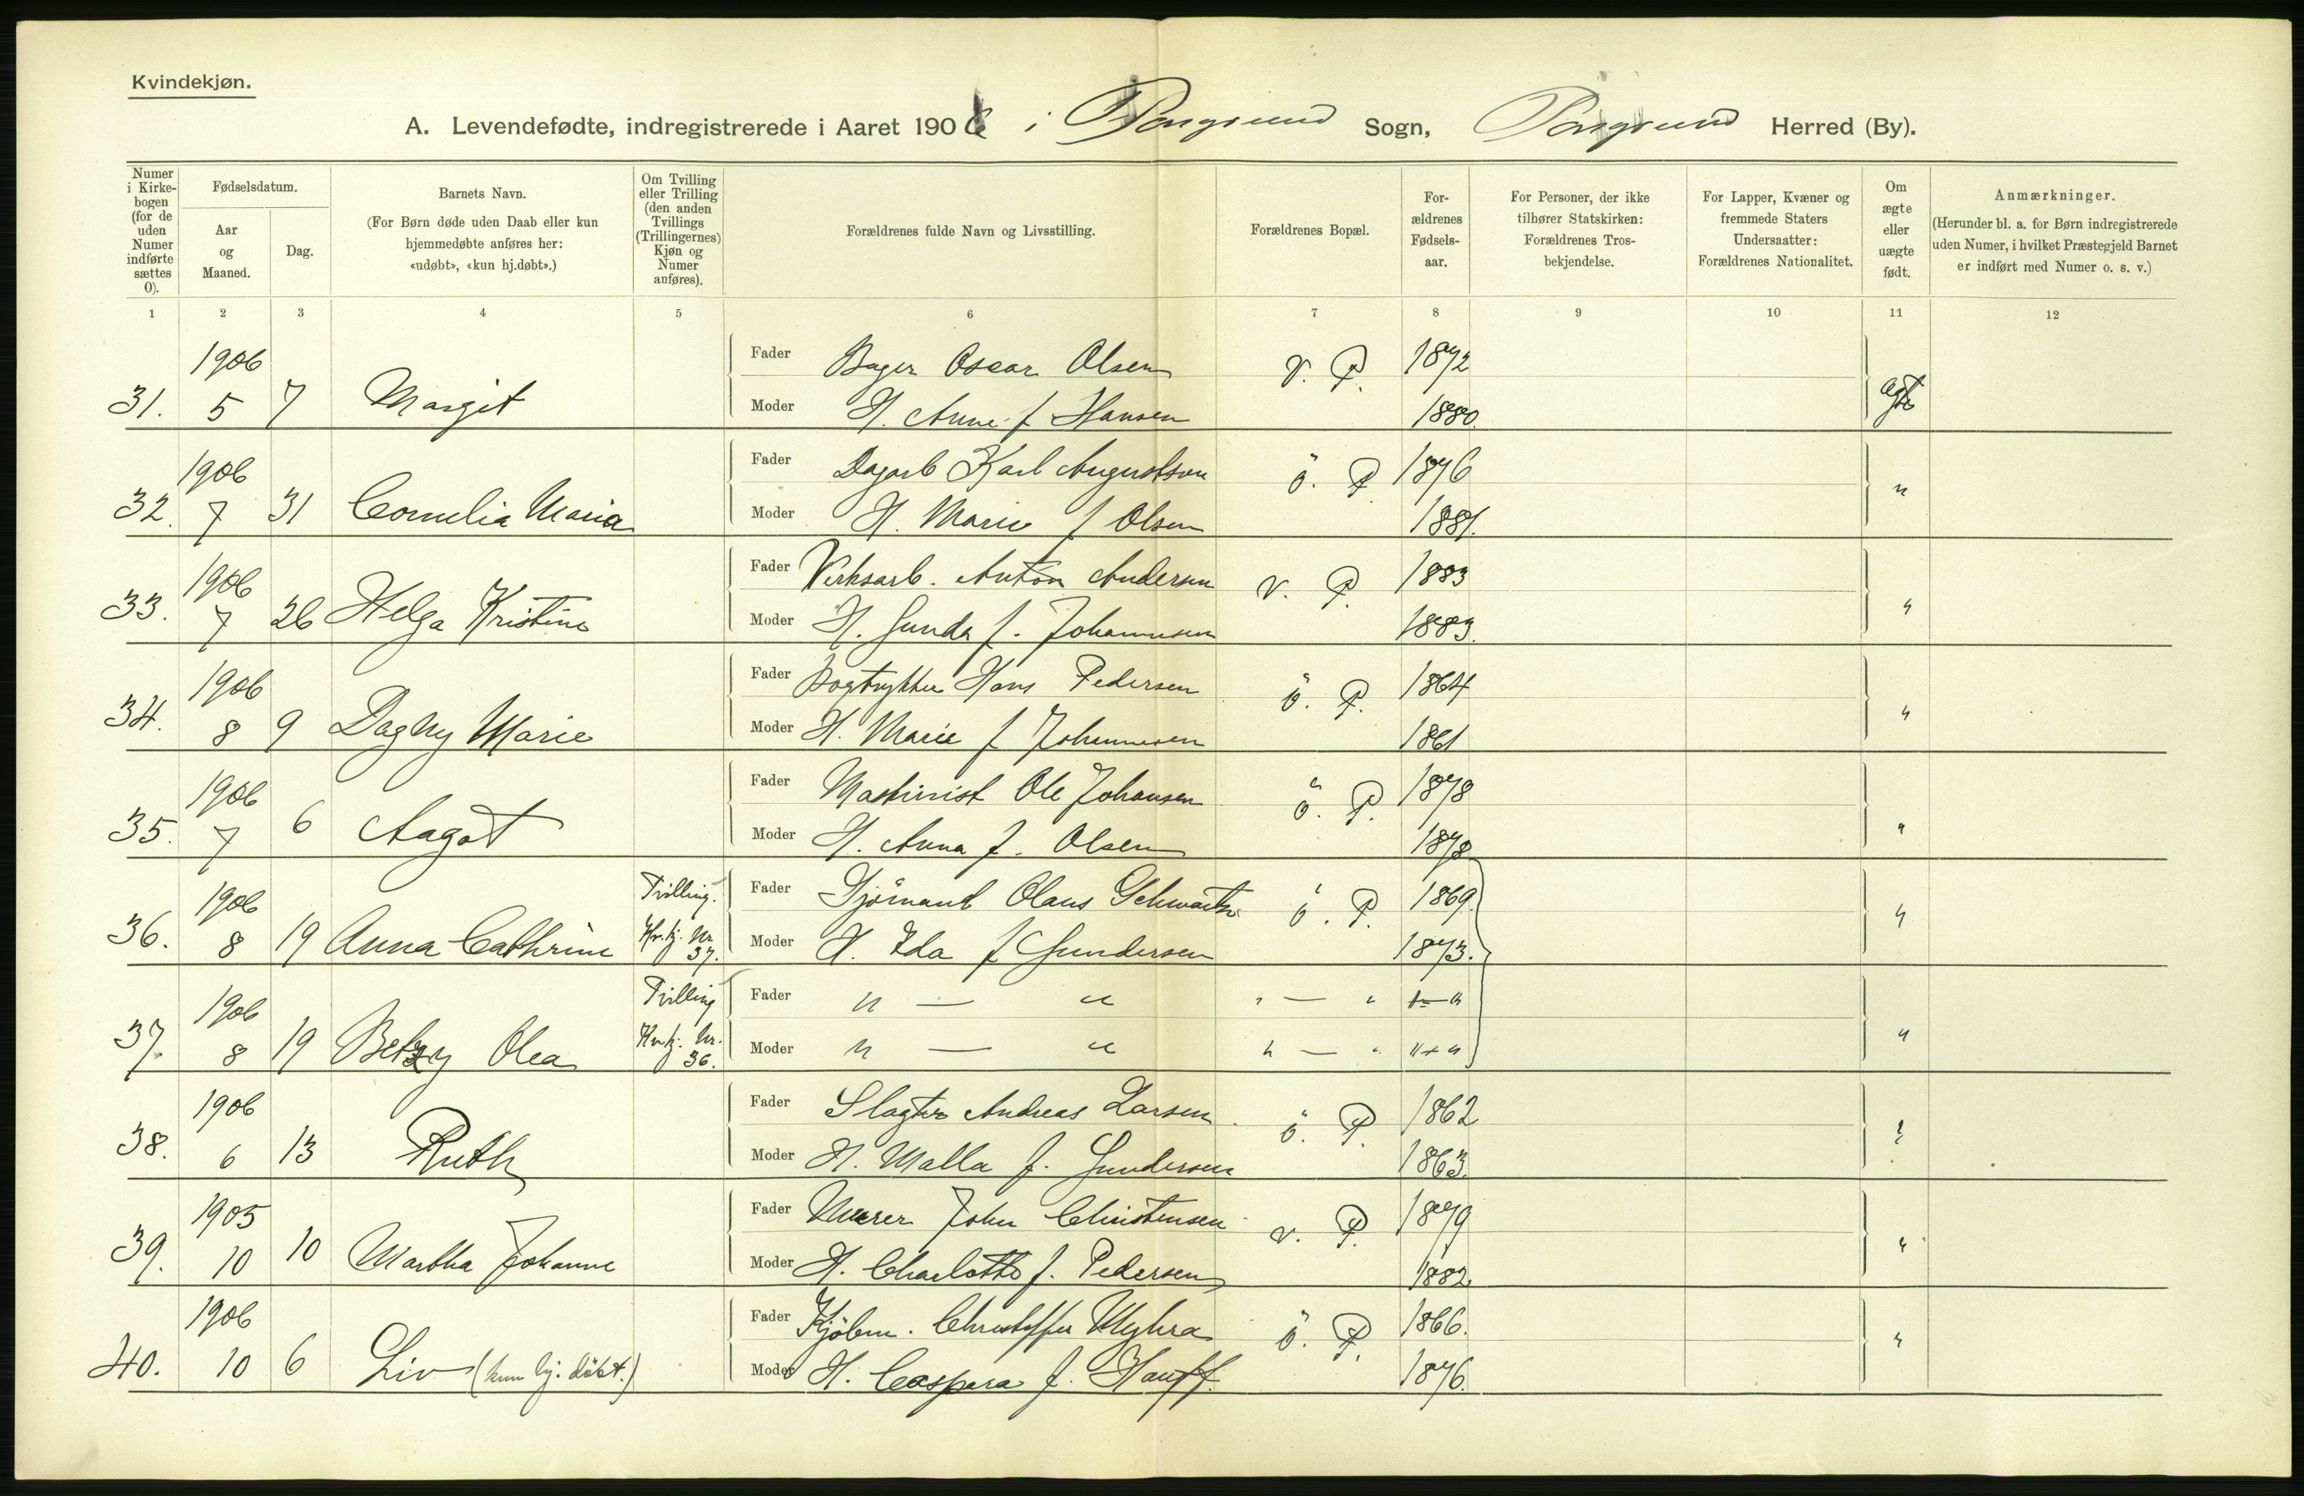 Kvindekjøn.
A. Levendefødte, indregistrerede i Aaret 1906 i Porsgrund Sogn, Porsgrund Herred (By).
Numer i Kirkebogen (for de uden Numer indførte sættes 0).
Fødselsdatum.
Aar og Maaned.
Dag.
Barnets Navn.
(For Børn døde uden Daab eller kun hjemmedøbte anføres her: «udøbt», «kun hj.døbt».)
Om Tvilling eller Trilling (den anden Tvillings (Trillingernes) Kjøn og Numer anføres).
Forældrenes fulde Navn og Livsstilling.
Forældrenes Bopæl.
Forældrenes Fødselsaar.
For Personer, der ikke tilhører Statskirken: Forældrenes Trosbekjendelse.
For Lapper, Kvæner og fremmede Staters Undersaatter: Forældrenes Nationalitet.
Om ægte eller uægte født.
Anmærkninger.
(Herunder bl. a. for Børn indregistrerede uden Numer, i hvilket Præstegjeld Barnet er indført med Numer o. s. v.)
1 2 3 4 5 6 7 8 9 10 11 12
1906 Fader Bager Oscar Olsen V. P. 1872 ægte
31. 5 7 Margit Moder H. Anne f Hansen 1880.
1906 Fader Dagarb Karl Augustson ö. P. 1876 "
32. 7 31 Cornelia Maria Moder H. Marie f Olsen 1881.
1906 Fader Verksarb. Anton Andersen V. P. 1883 "
33. 7 26 Helga Kristine Moder H. Gunda f. Johannesen 1883.
1906 Fader Bogtrykker Hans Pedersen ö. P. 1864 "
34. 8 9 Dagny Marie Moder H. Marie f Johannesen 1861
1906 Fader Maskinist Ole Johansen ö. P. 1878 "
35. 7 6 Aagot Moder H. Anna f. Olsen 1878
1906 Tvilling. Fader Sjömand Olaus Schwartz ö. P. 1869. "
36. 8 19 Anna Cathrine Kv.kj. Nr. 37. Moder H. Ida f Gundersen 1873.
1906 Tvilling Fader " — " " — " " — "
37. 8 19 Betzy Olea Kv.kj. Nr. 36. Moder " — " " — " " — " "
1906 Fader Slagter Andreas Larsen ö. P. 1862 "
38. 6 13 Ruth Moder H. Malla f. Gundersen 1863.
1905 Fader Murer John Christensen V. P. 1879 "
39. 10 10 Martha Johanne Moder H. Charlotte f. Pedersen 1882.
1906 Fader Kjöbm. Christoffer Myhra ö. P. 1866. "
40. 10 6 Liv (kun hj. döbt.) Moder H. Caspara f. Hauff. 1876.